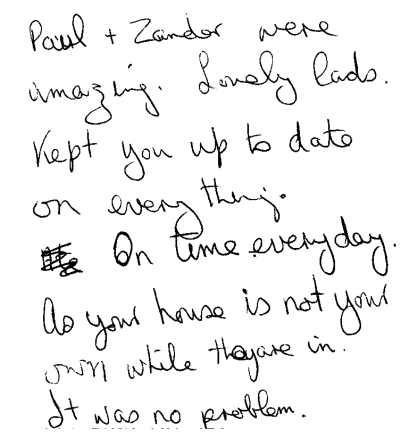 Paul + Zander were
amazing. Lovely lads.
Kept you up to date
on every thing.
On time everyday.
As your house is not your
own while they are in.
It was no problem.